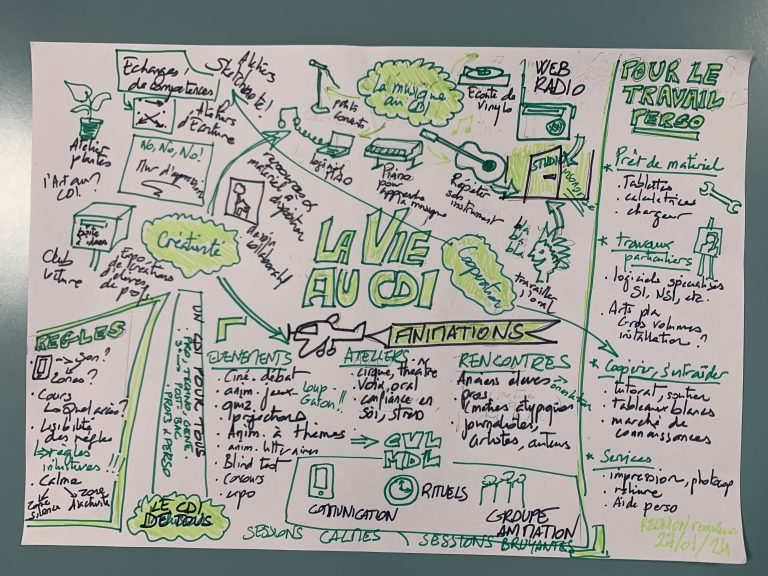 Echanges
de compétences
Ateliers
Sketchnote!
Ateliers
d'Ecriture
Atelier
plantes
NO, NO, NO!
Mur d'expression
l'Art au
CDI.
boîte
à idées
Club
lecture
Créativité
Expos
de créations
d'élèves
de profs
matériel à
disposition
design
collaboratif
La musique
au CDI
Ecoute de
vinyls
logiciel
Piano
pour
apprendre
la musique
Répéter
son
instrument
WEB
RADIO
STUDIO
insonorisé
bla
bla
bla
travailler
l'oral
LA VIE
AU CDI
Coopération
ANIMATIONS
EVENEMENTS
Ciné-débat
anim. jeux
quiz
projections
Anim. à thèmes
anim. littéraires
Blind test
Concours
expo
Loup
Garou!!
ATELIERS
cirque, théâtre
Voix, oral
confiance en
soi, stress
RENCONTRES
Anciens élèves
→ orientation
pros,
métiers atypiques
journalistes,
artistes, auteurs
CVL
MDL
COMMUNICATION
RITUELS
GROUPE
ANIMATION
SESSIONS CALMES
SESSIONS BRUYANTES
REGLES
→ Son?
→ Zones?
Cours
Lisibilité
des règles
→ règles
intuitives !!!
Calme
Zone
silence
Zone
d'activité
UN CDI POUR TOUS
PRO, TECHNO, GENE
POST-BAC
PROFS & PERSO
LE CDI
DE TOUS
POUR LE
TRAVAIL
PERSO
* Prêt de matériel
. Tablettes
. calculatrices
. chargeur
* travaux
particuliers
. logiciels spécialisés
SI, NSI, etc.
. Arts pla
Gros volumes
installation?
* Coopérer, s'entraider
. tutorat, soutien
. tableaux blancs
. marché de
connaissances
* Services
. impression, photocop
. reliure
. Aide perso
27/01/24